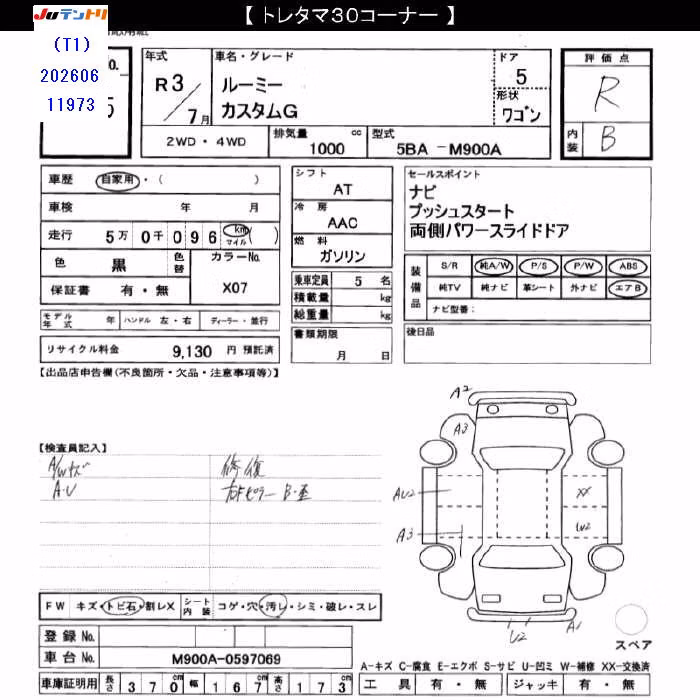 【 トレタマ30コーナー 】
JUテントリ
(T1)
202606
11973
No.
5
年式
R 3/7月
車名・グレード
ルーミー
カスタムG
ドア
5
形状
ワゴン
評価点
R
内装
B
2WD・4WD
排気量 cc
1000
型式
5BA -M900A
車歴 自家用・( )
車検 年 月
走行 5万 0千 0 9 6 km マイル ( )
色 黒 色替
カラーNo.
X07
保証書 有・無
モデル年式 年 ハンドル 左・右 ディーラー・並行
リサイクル料金 9,130 円 預託済
シフト
AT
冷房
AAC
燃料
ガソリン
乗車定員 5 名
積載量 kg
総重量 kg
書類期限
月 日
セールスポイント
ナビ
プッシュスタート
両側パワースライドドア
装備品
S/R 純A/W P/S P/W ABS
純TV 純ナビ 革シート 外ナビ エアB
ナビ型番：
後日品
【出品店申告欄(不良箇所・欠品・注意事項等)】
【検査員記入】
A/Wキズ
A・U
修復
右Fピラー B・歪
A2
A3
AU2
XX
A3
W2
U2
A1
スペア
FW キズ・トビ石・割レX シート内装 コゲ・穴・汚レ・シミ・破レ・スレ
登録No.
車台No. M900A-0597069
車庫証明用 長さ 370cm 幅 167cm 高さ 173cm
A-キズ C-腐食 E-エクボ S-サビ U-凹ミ W-補修 XX-交換済
工具 有・無 ジャッキ 有・無